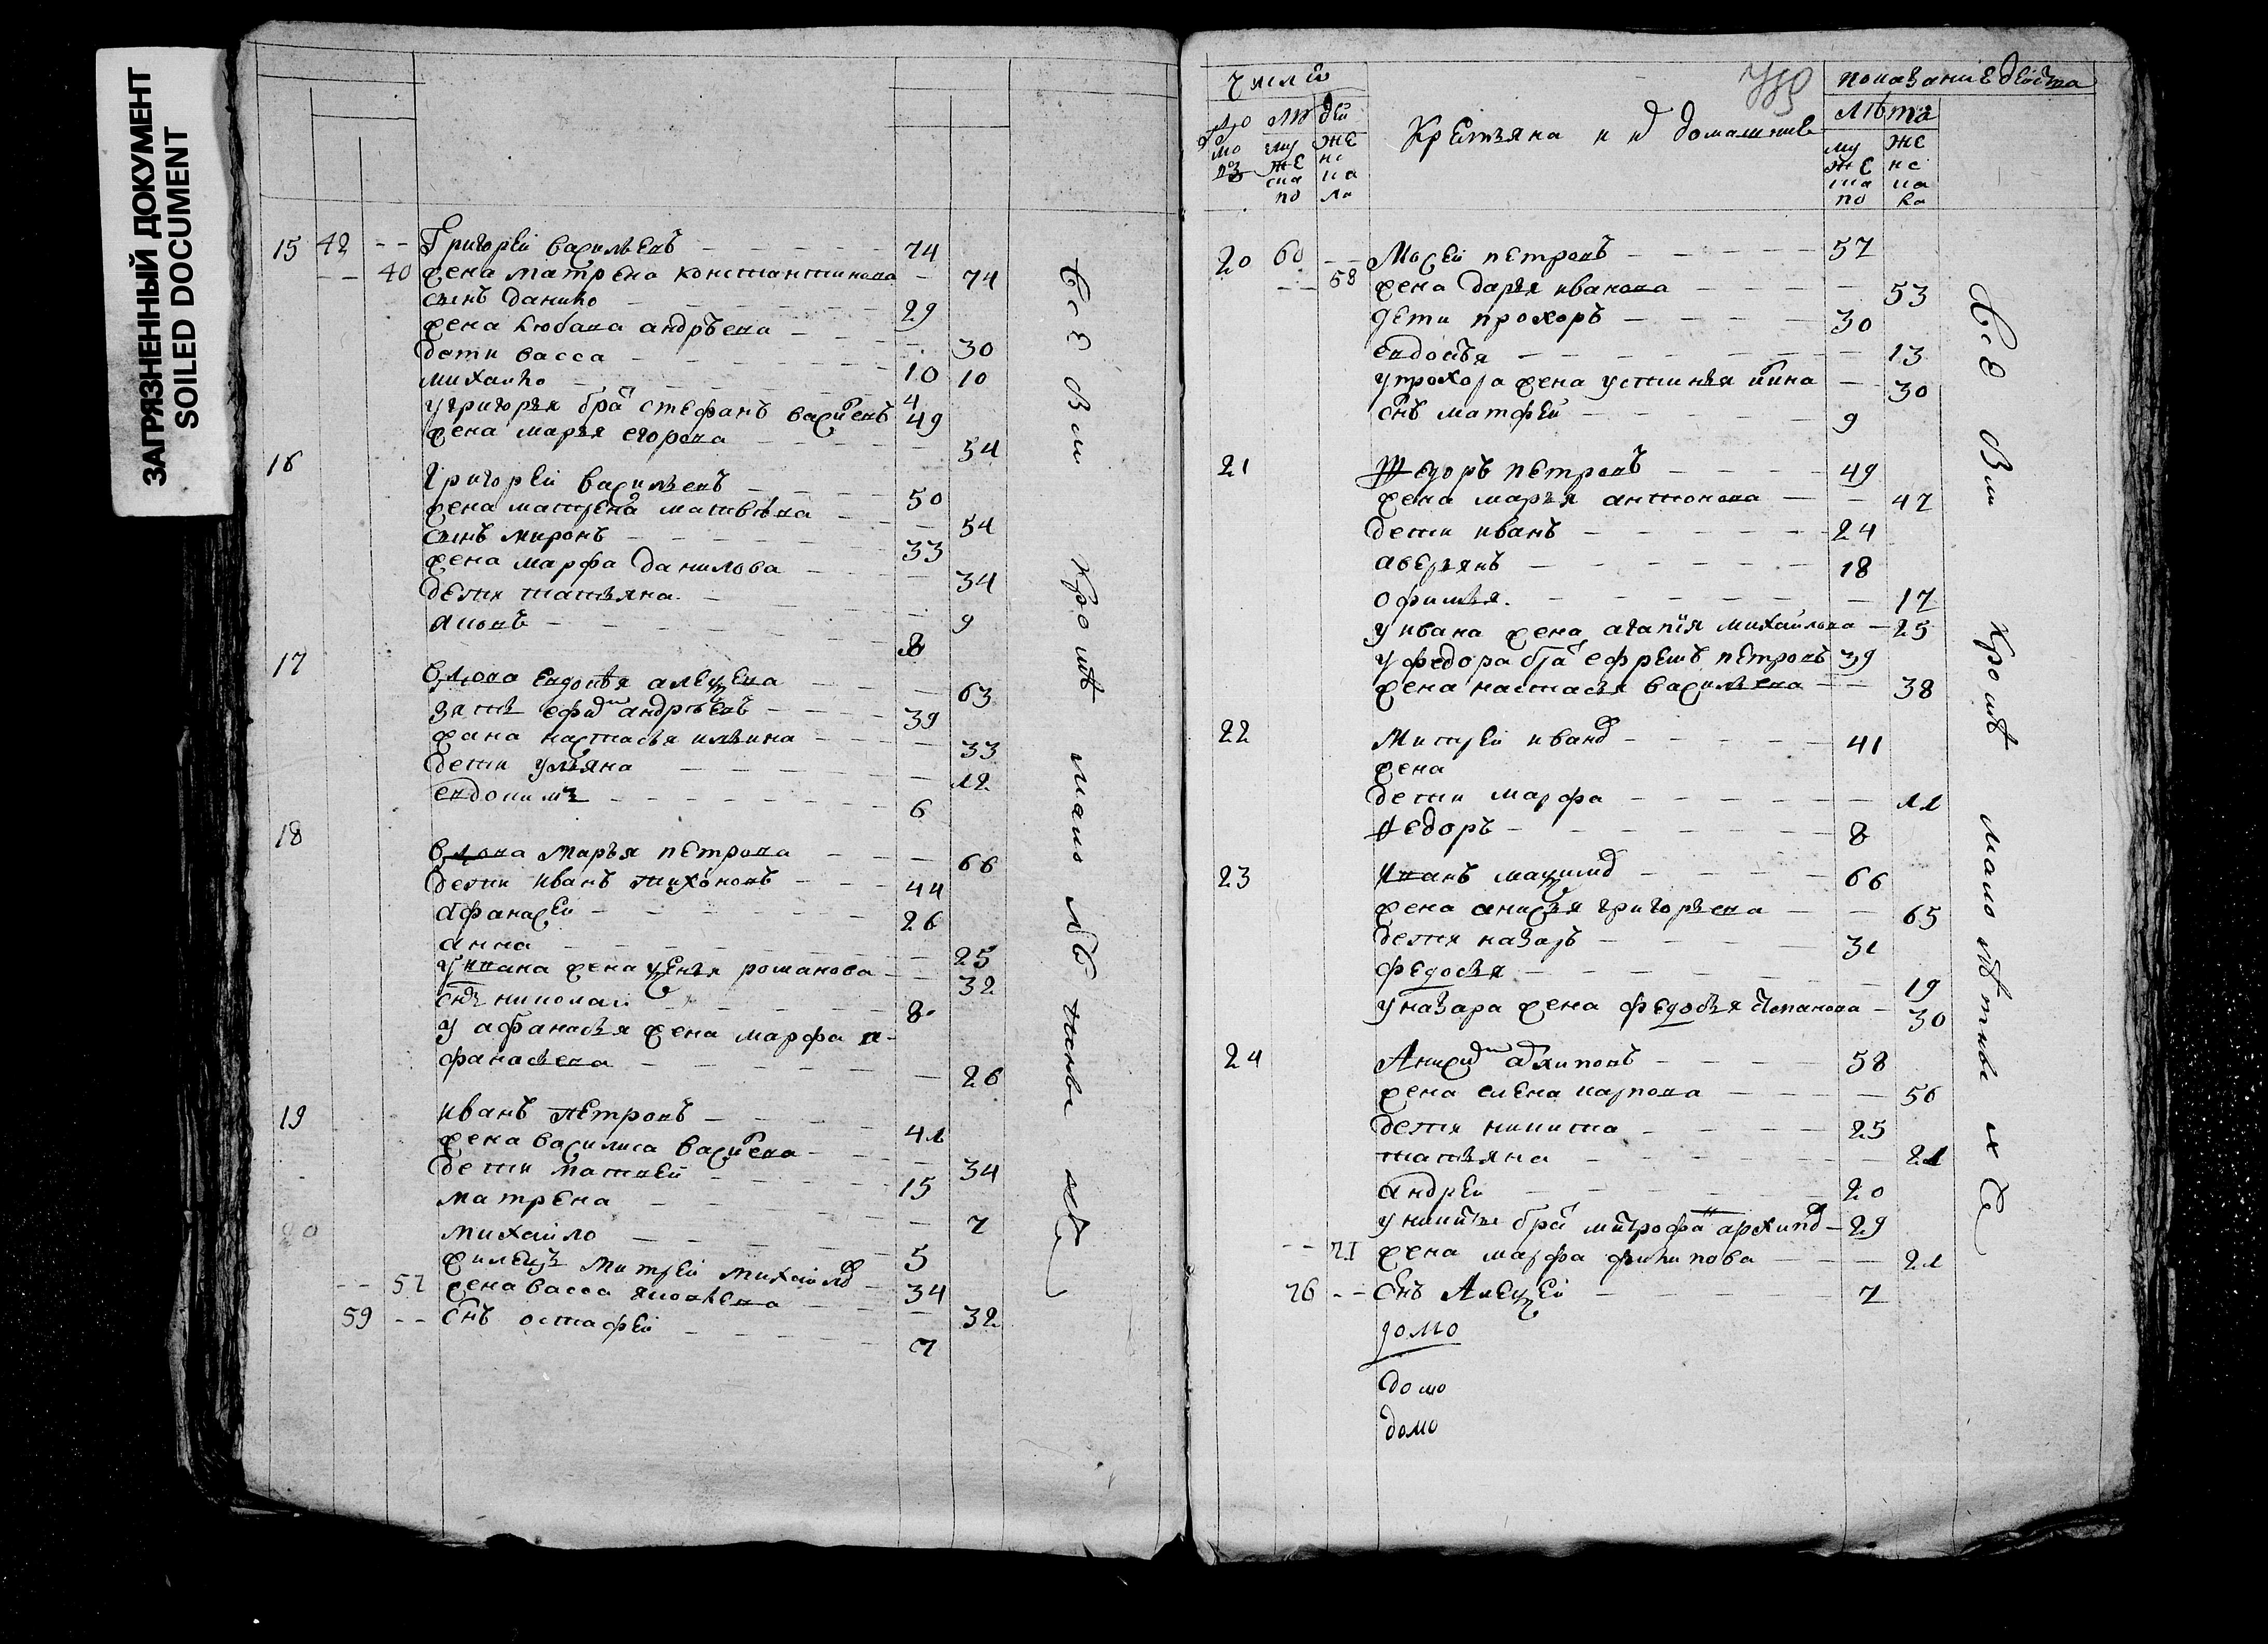 ЗАГРЯЗНЕННЫЙ ДОКУМЕНТ
SOILED DOCUMENT
15 42 -- Григорей васильевъ 74
-- 40 жена матрена константинова 74
сынъ данило 29
жена любава андрѣева 30
дети васса 10
михайло 10 4
у григорья бра стефанъ васиевъ 49
жена марья егорова 54
16 Григорей васильевъ 50
жена матрена матвѣева 54
сынъ миронъ 33
жена марфа данилова 34
дети татьяна 9
яковъ 8
17 вдова евдокѣя алеѯева 63
зять андрѣевъ 39
жена настасья ильина 33
дети ульяна 12
евдокимъ 6
18 вдова марья петрова 66
дети иванъ тихоновъ 44
афанасеи 26
анна 25
у ивана жена романова 32
снъ николаи 8
у афанасья жена марфа а-
фанасьева 26
19 иванъ петровъ 41
жена василиса васиева 34
дети матвей 15
матрена 7
михайло 5
20 жилецъ митрей михайлов 34
-- 57 жена васса яковлева 32
59 -- снъ остафей 7
всѣ вм кромѣ мало лѣтные
число
людей
муже женс
ска ка
по ла
Крестьяна и их домашние
показание действа
лѣта
муже женс
ска ка
по ла
20 60 -- Мосей петровъ 57
-- 58 жена дарья иванова 53
дети прохоръ 30
евдокѣя 13
у прохора жена устинья 30
снъ матфей 9
21 Федоръ петровъ 49
жена марья антонова 47
дети иванъ 24
аверьянъ 18
офимья 17
у ивана жена агапія михайлова 25
у федора бра ефремъ петровъ 39
жена настасья васильева 38
22 Митрей иванов 41
жена
дети марфа 11
федоръ 8
23 иванъ максимов 66
жена анисья григорьева 65
дети назаръ 31
федосья 19
у назара жена федосья степанова 30
24 Анисим архиповъ 58
жена елена карпова 56
дети никита 25
татьяна 21
андрей 20
у никиты бра митрофан архипов 29
-- 71 жена марфа филипова 21
76 -- снъ Алеѯей 7
домо
домо
домо
всѣ вм кромѣ мало лѣтные